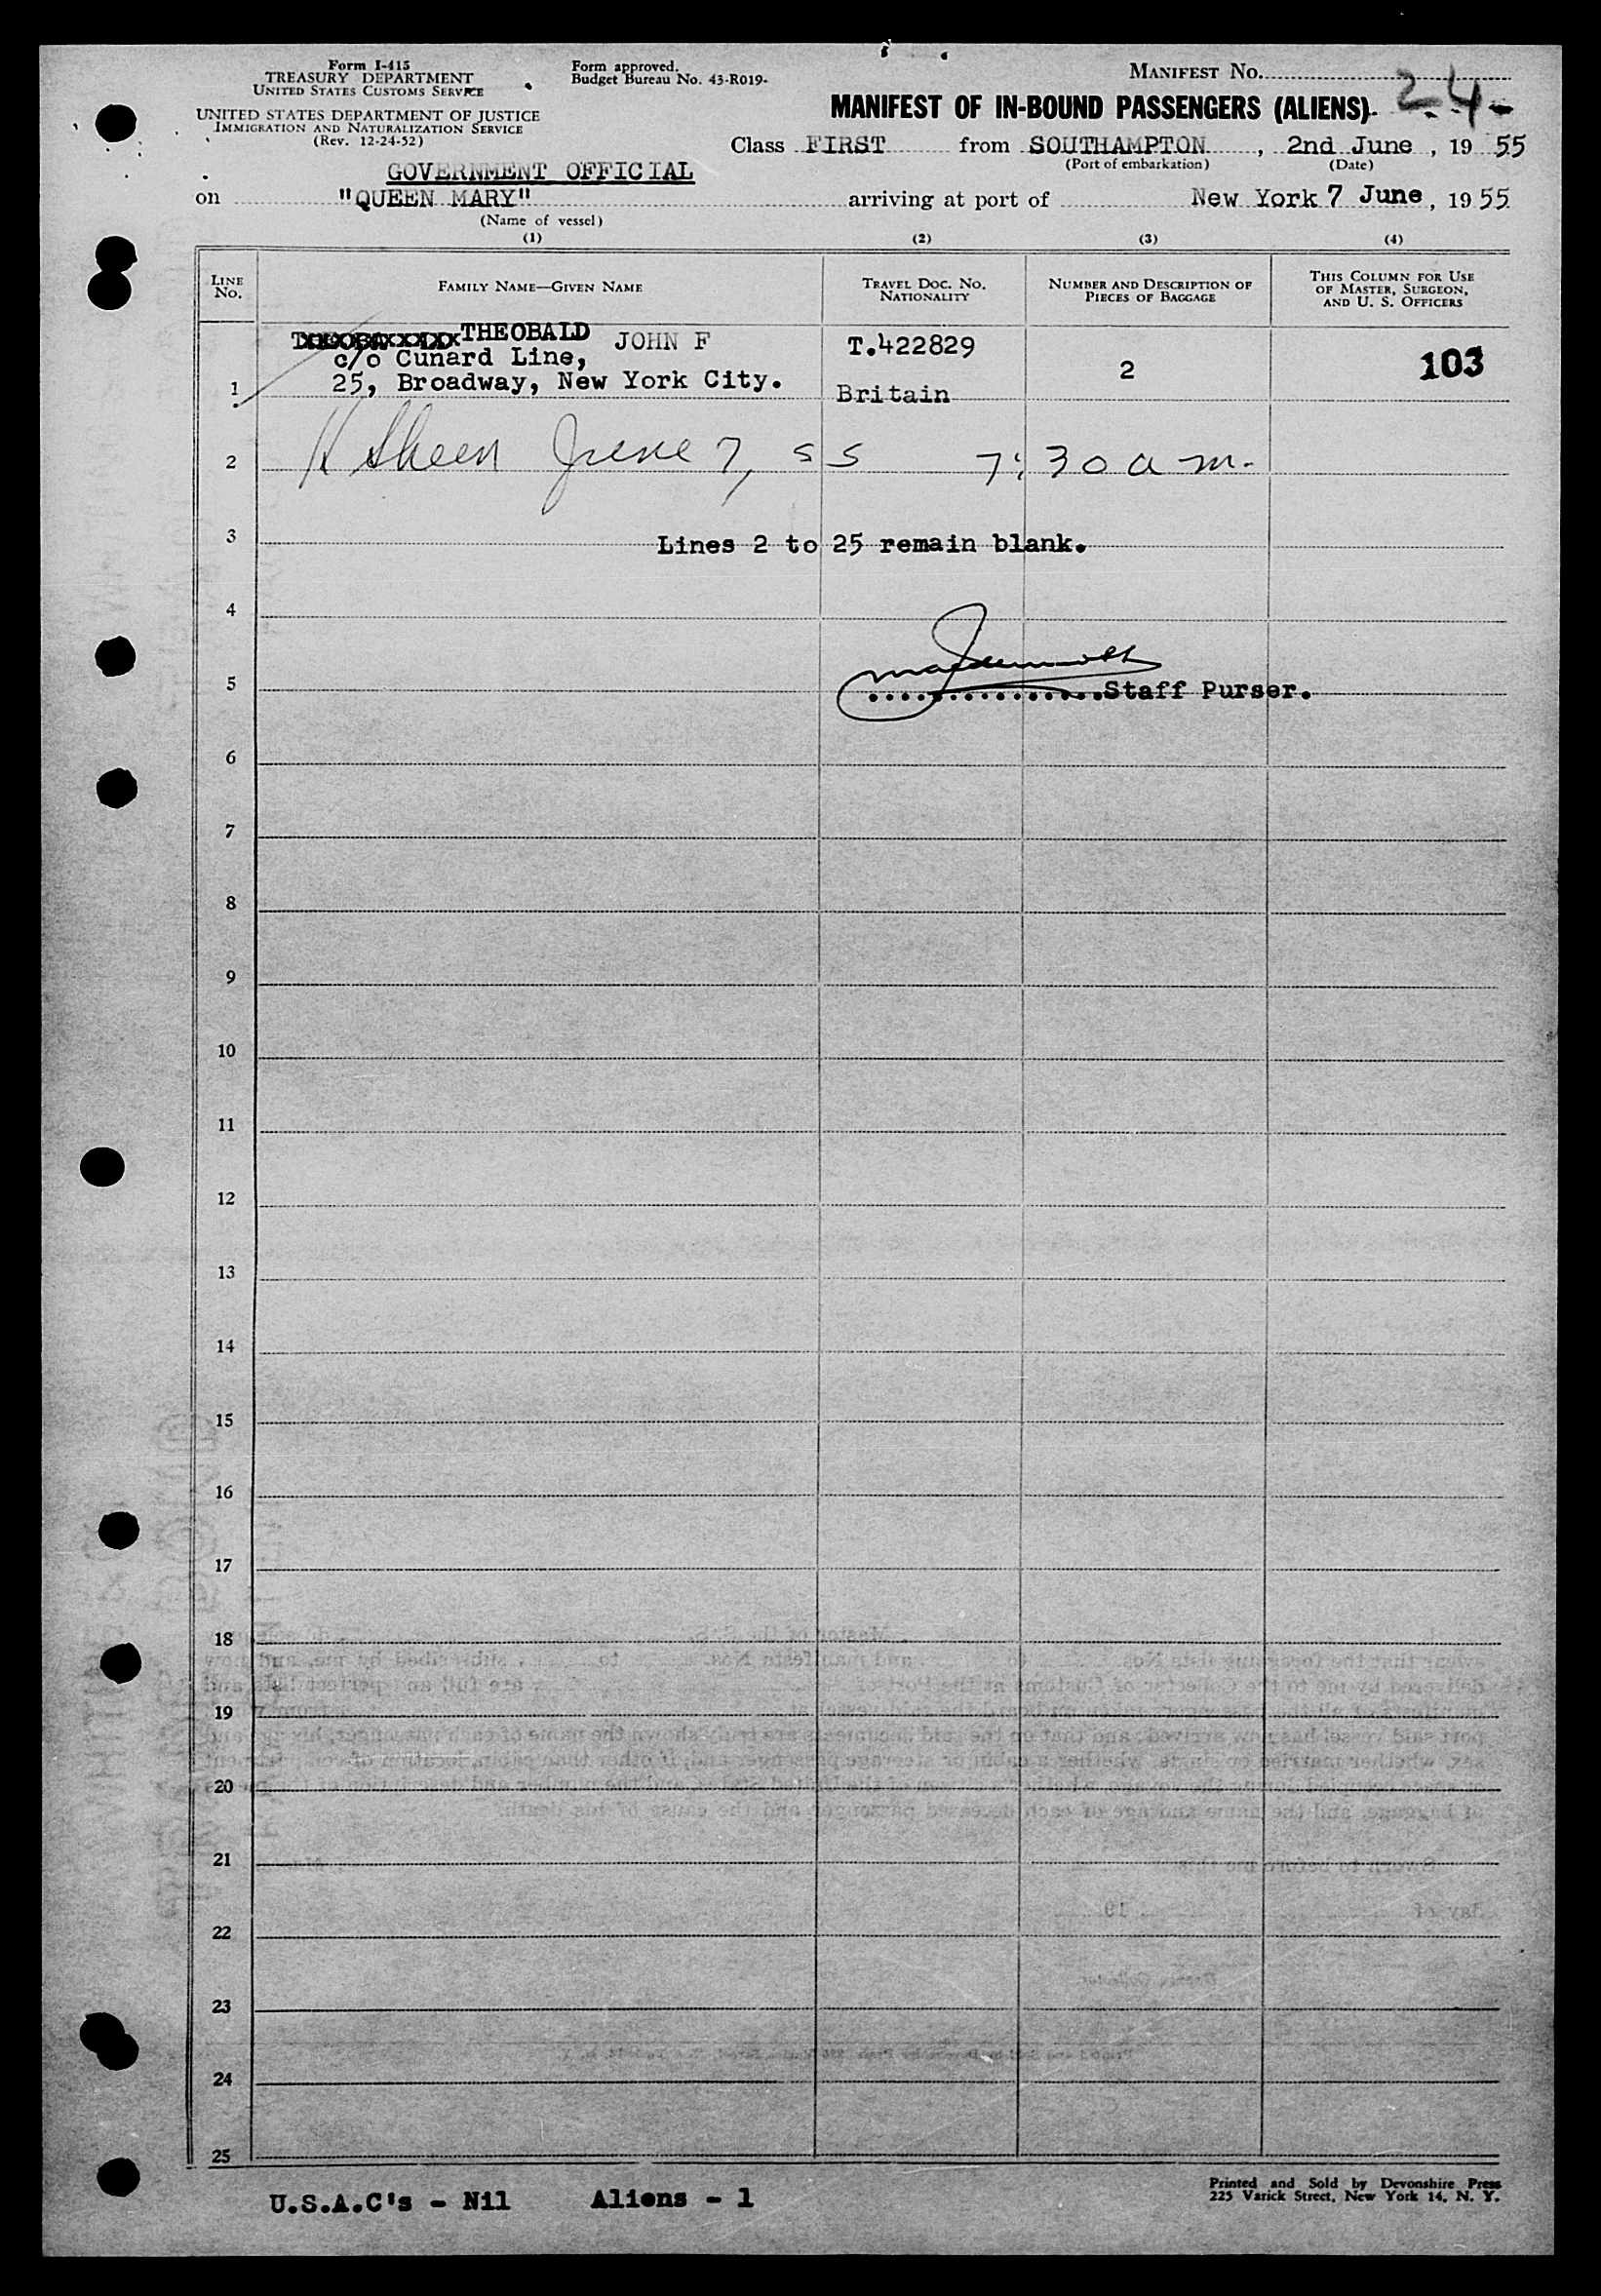 Form I-415
TREASURY DEPARTMENT
UNITED STATES CUSTOMS SERVICE
UNITED STATES DEPARTMENT OF JUSTICE
IMMIGRATION AND NATURALIZATION SERVICE
(Rev. 12-24-52)
Form approved.
Budget Bureau No. 43-R019-
MANIFEST NO. 24-
MANIFEST OF IN-BOUND PASSENGERS (ALIENS)
Class FIRST from SOUTHAMPTON, 2nd June, 19 55
(Port of embarkation) (Date)
GOVERNMENT OFFICIAL
on "QUEEN MARY" arriving at port of New York 7 June, 19 55
(Name of vessel)
(1) (2) (3) (4)
LINE NO.
FAMILY NAME—GIVEN NAME
TRAVEL DOC. NO.
NATIONALITY
NUMBER AND DESCRIPTION OF
PIECES OF BAGGAGE
THIS COLUMN FOR USE
OF MASTER, SURGEON,
AND U. S. OFFICERS
THEOBALD JOHN F T.422829
c/o Cunard Line, 2 103
1 25, Broadway, New York City. Britain
2 H Sheen June 7, 55 7:30 a m.
3 Lines 2 to 25 remain blank.
4
5 ...............Staff Purser.
6
7
8
9
10
11
12
13
14
15
16
17
18
19
20
21
22
23
24
25
U.S.A.C's - Nil Aliens - 1
Printed and Sold by Devonshire Press
225 Varick Street, New York 14, N. Y.